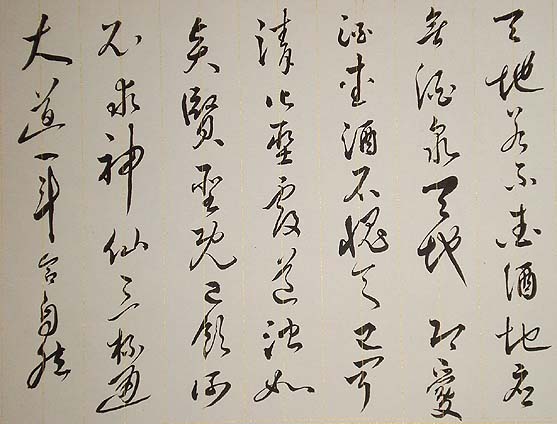 天地若不愛酒地應
無酒泉天地既愛
酒愛酒不愧天已聞
清比聖復道濁如
賢賢聖既已飲何
必求神仙三杯通
大道一斗合自然